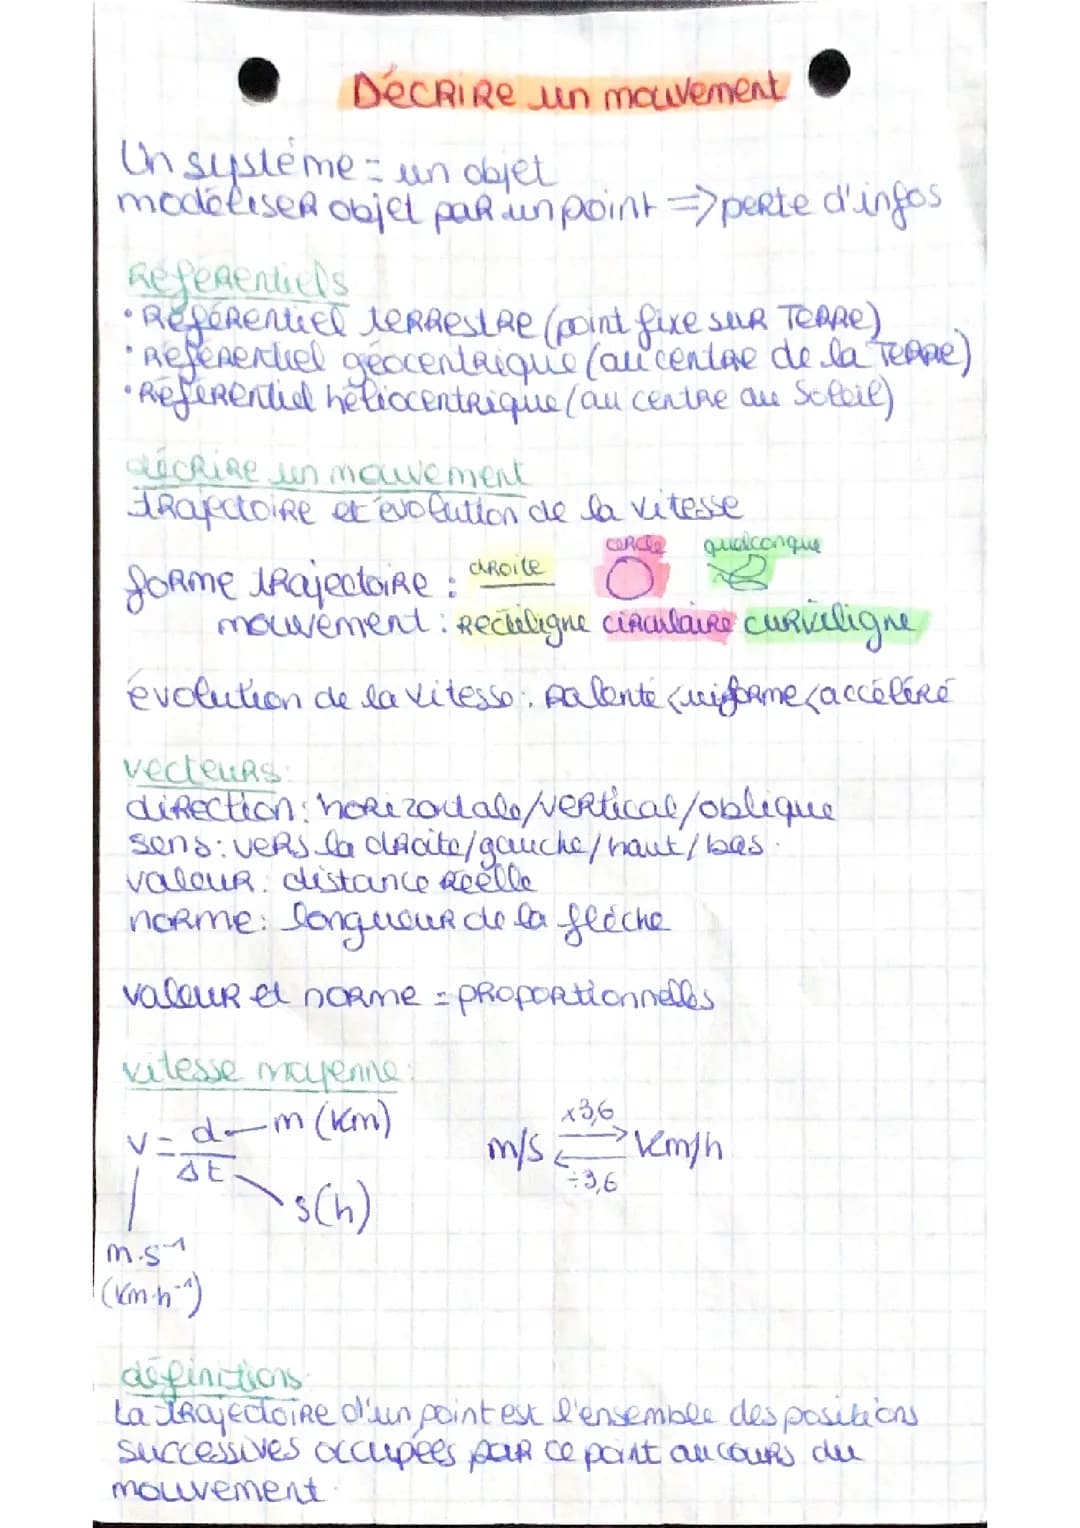 Décrire un mouvement
Un système = un objet
modéliser objet par un point => perte d'infos
Référentiels
• Référentiel terrestre (point fixe sur Terre)
• Référentiel géocentrique (au centre de la Terre)
• Référentiel héliocentrique (au centre au Soleil)
décrire un mouvement
trajectoire et évolution de la vitesse
droite cercle quelconque
forme trajectoire :
mouvement : rectiligne circulaire curviligne
évolution de la vitesse : ralenti < uniforme < accéléré
vecteurs:
direction : horizontale/vertical/oblique
sens : vers la droite/gauche/haut/bas.
valeur : distance réelle
norme : longueur de la flèche
valeur et norme = proportionnelles
vitesse moyenne :
v = d/Δt m (km) s (h)
m/s x3,6 ÷3,6 km/h
m.s⁻¹
(km.h⁻¹)
définitions
La trajectoire d'un point est l'ensemble des positions
successives occupées par ce point au cours du
mouvement.